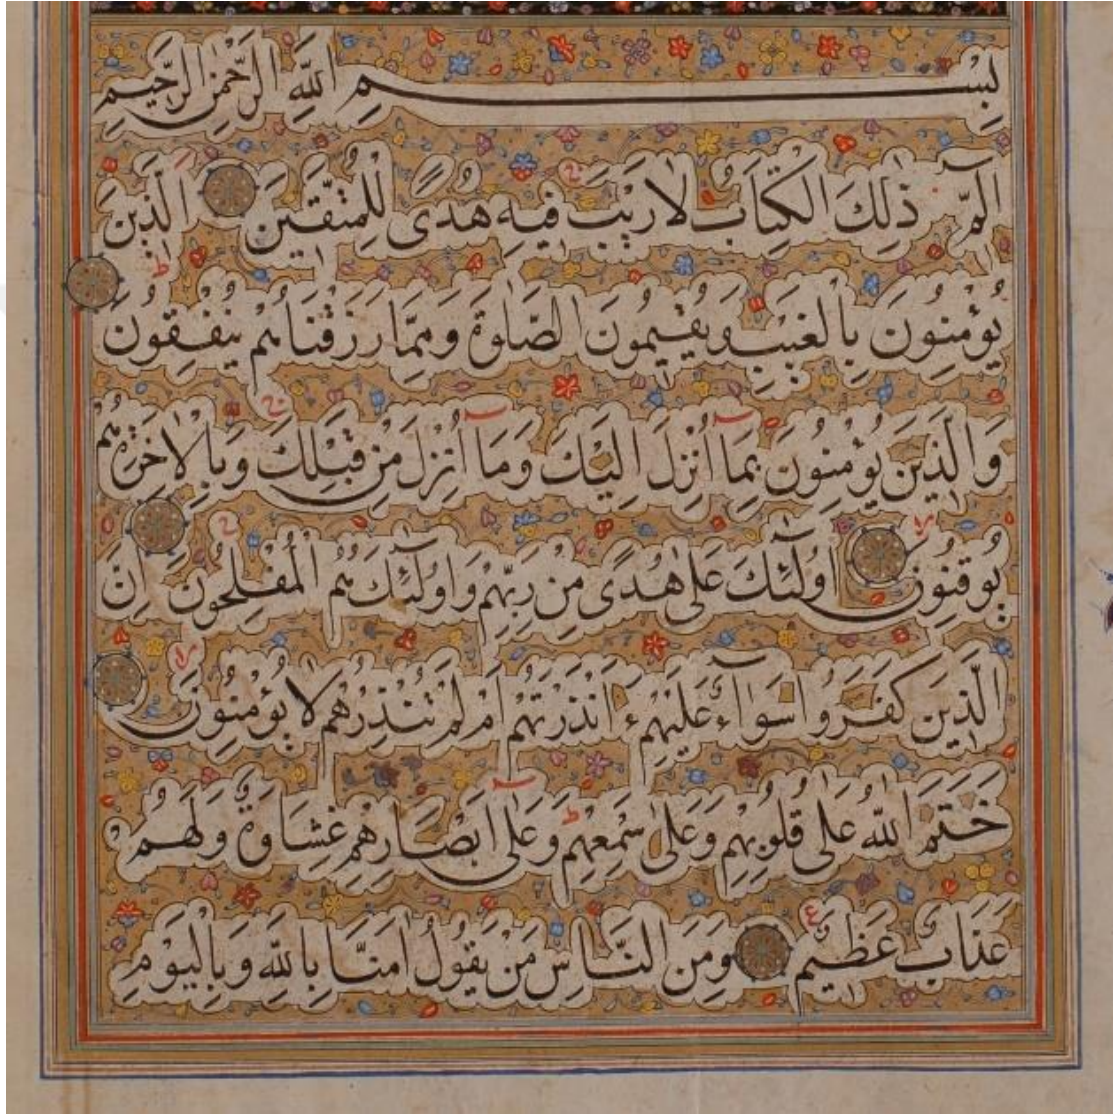 بِسْمِ اللّٰهِ الرَّحْمٰنِ الرَّحِيمِ
الٓمٓ ذٰلِكَ الْكِتَابُ لَا رَيْبَ فِيهِ هُدًى لِلْمُتَّقِينَ الَّذِينَ
يُؤْمِنُونَ بِالْغَيْبِ وَيُقِيمُونَ الصَّلٰوةَ وَمِمَّا رَزَقْنَاهُمْ يُنْفِقُونَ
وَالَّذِينَ يُؤْمِنُونَ بِمَٓا اُنْزِلَ اِلَيْكَ وَمَٓا اُنْزِلَ مِنْ قَبْلِكَ وَبِالْاٰخِرَةِ هُمْ
يُوقِنُونَ اُولٰٓئِكَ عَلٰى هُدًى مِنْ رَبِّهِمْ وَاُولٰٓئِكَ هُمُ الْمُفْلِحُونَ اِنَّ
الَّذِينَ كَفَرُوا سَوَٓاءٌ عَلَيْهِمْ ءَاَنْذَرْتَهُمْ اَمْ لَمْ تُنْذِرْهُمْ لَا يُؤْمِنُونَ
خَتَمَ اللّٰهُ عَلٰى قُلُوبِهِمْ وَعَلٰى سَمْعِهِمْ وَعَلٰٓى اَبْصَارِهِمْ غِشَاوَةٌ وَلَهُمْ
عَذَابٌ عَظِيمٌ وَمِنَ النَّاسِ مَنْ يَقُولُ اٰمَنَّا بِاللّٰهِ وَبِالْيَوْمِ